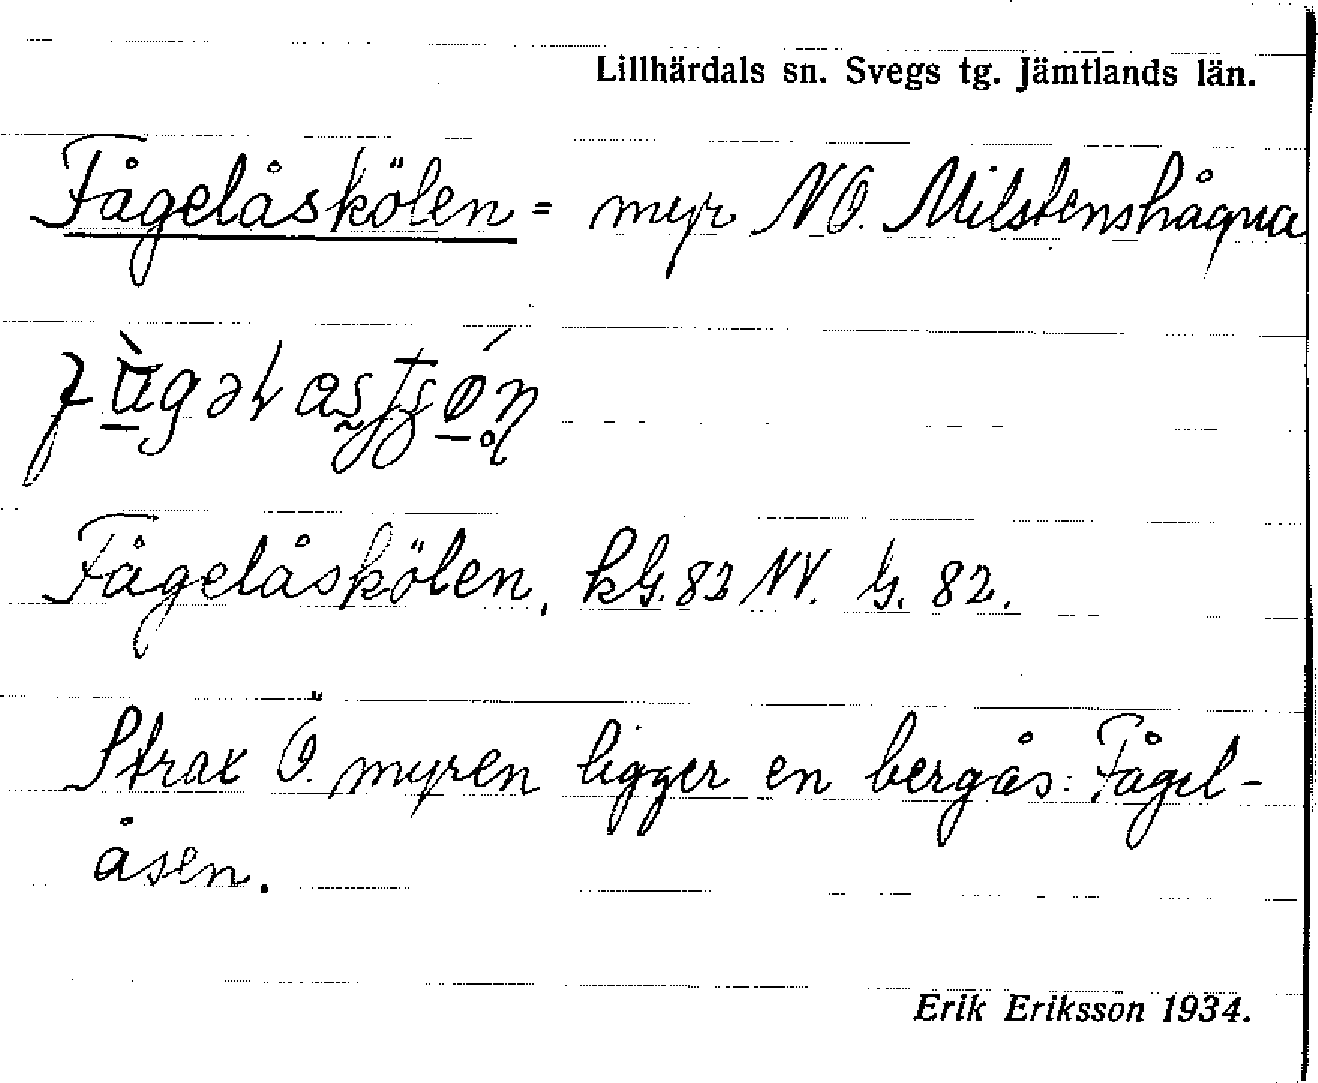 Lillhärdals sn. Svegs tg. Jämtlands län.
Fågelåskölen = myr NO. Milstenshågna
Fågelåskölen, kG. 82 NV. G. 82.
Strax Ö. myren ligger en bergås: Fågel-
åsen.
Erik Eriksson 1934.